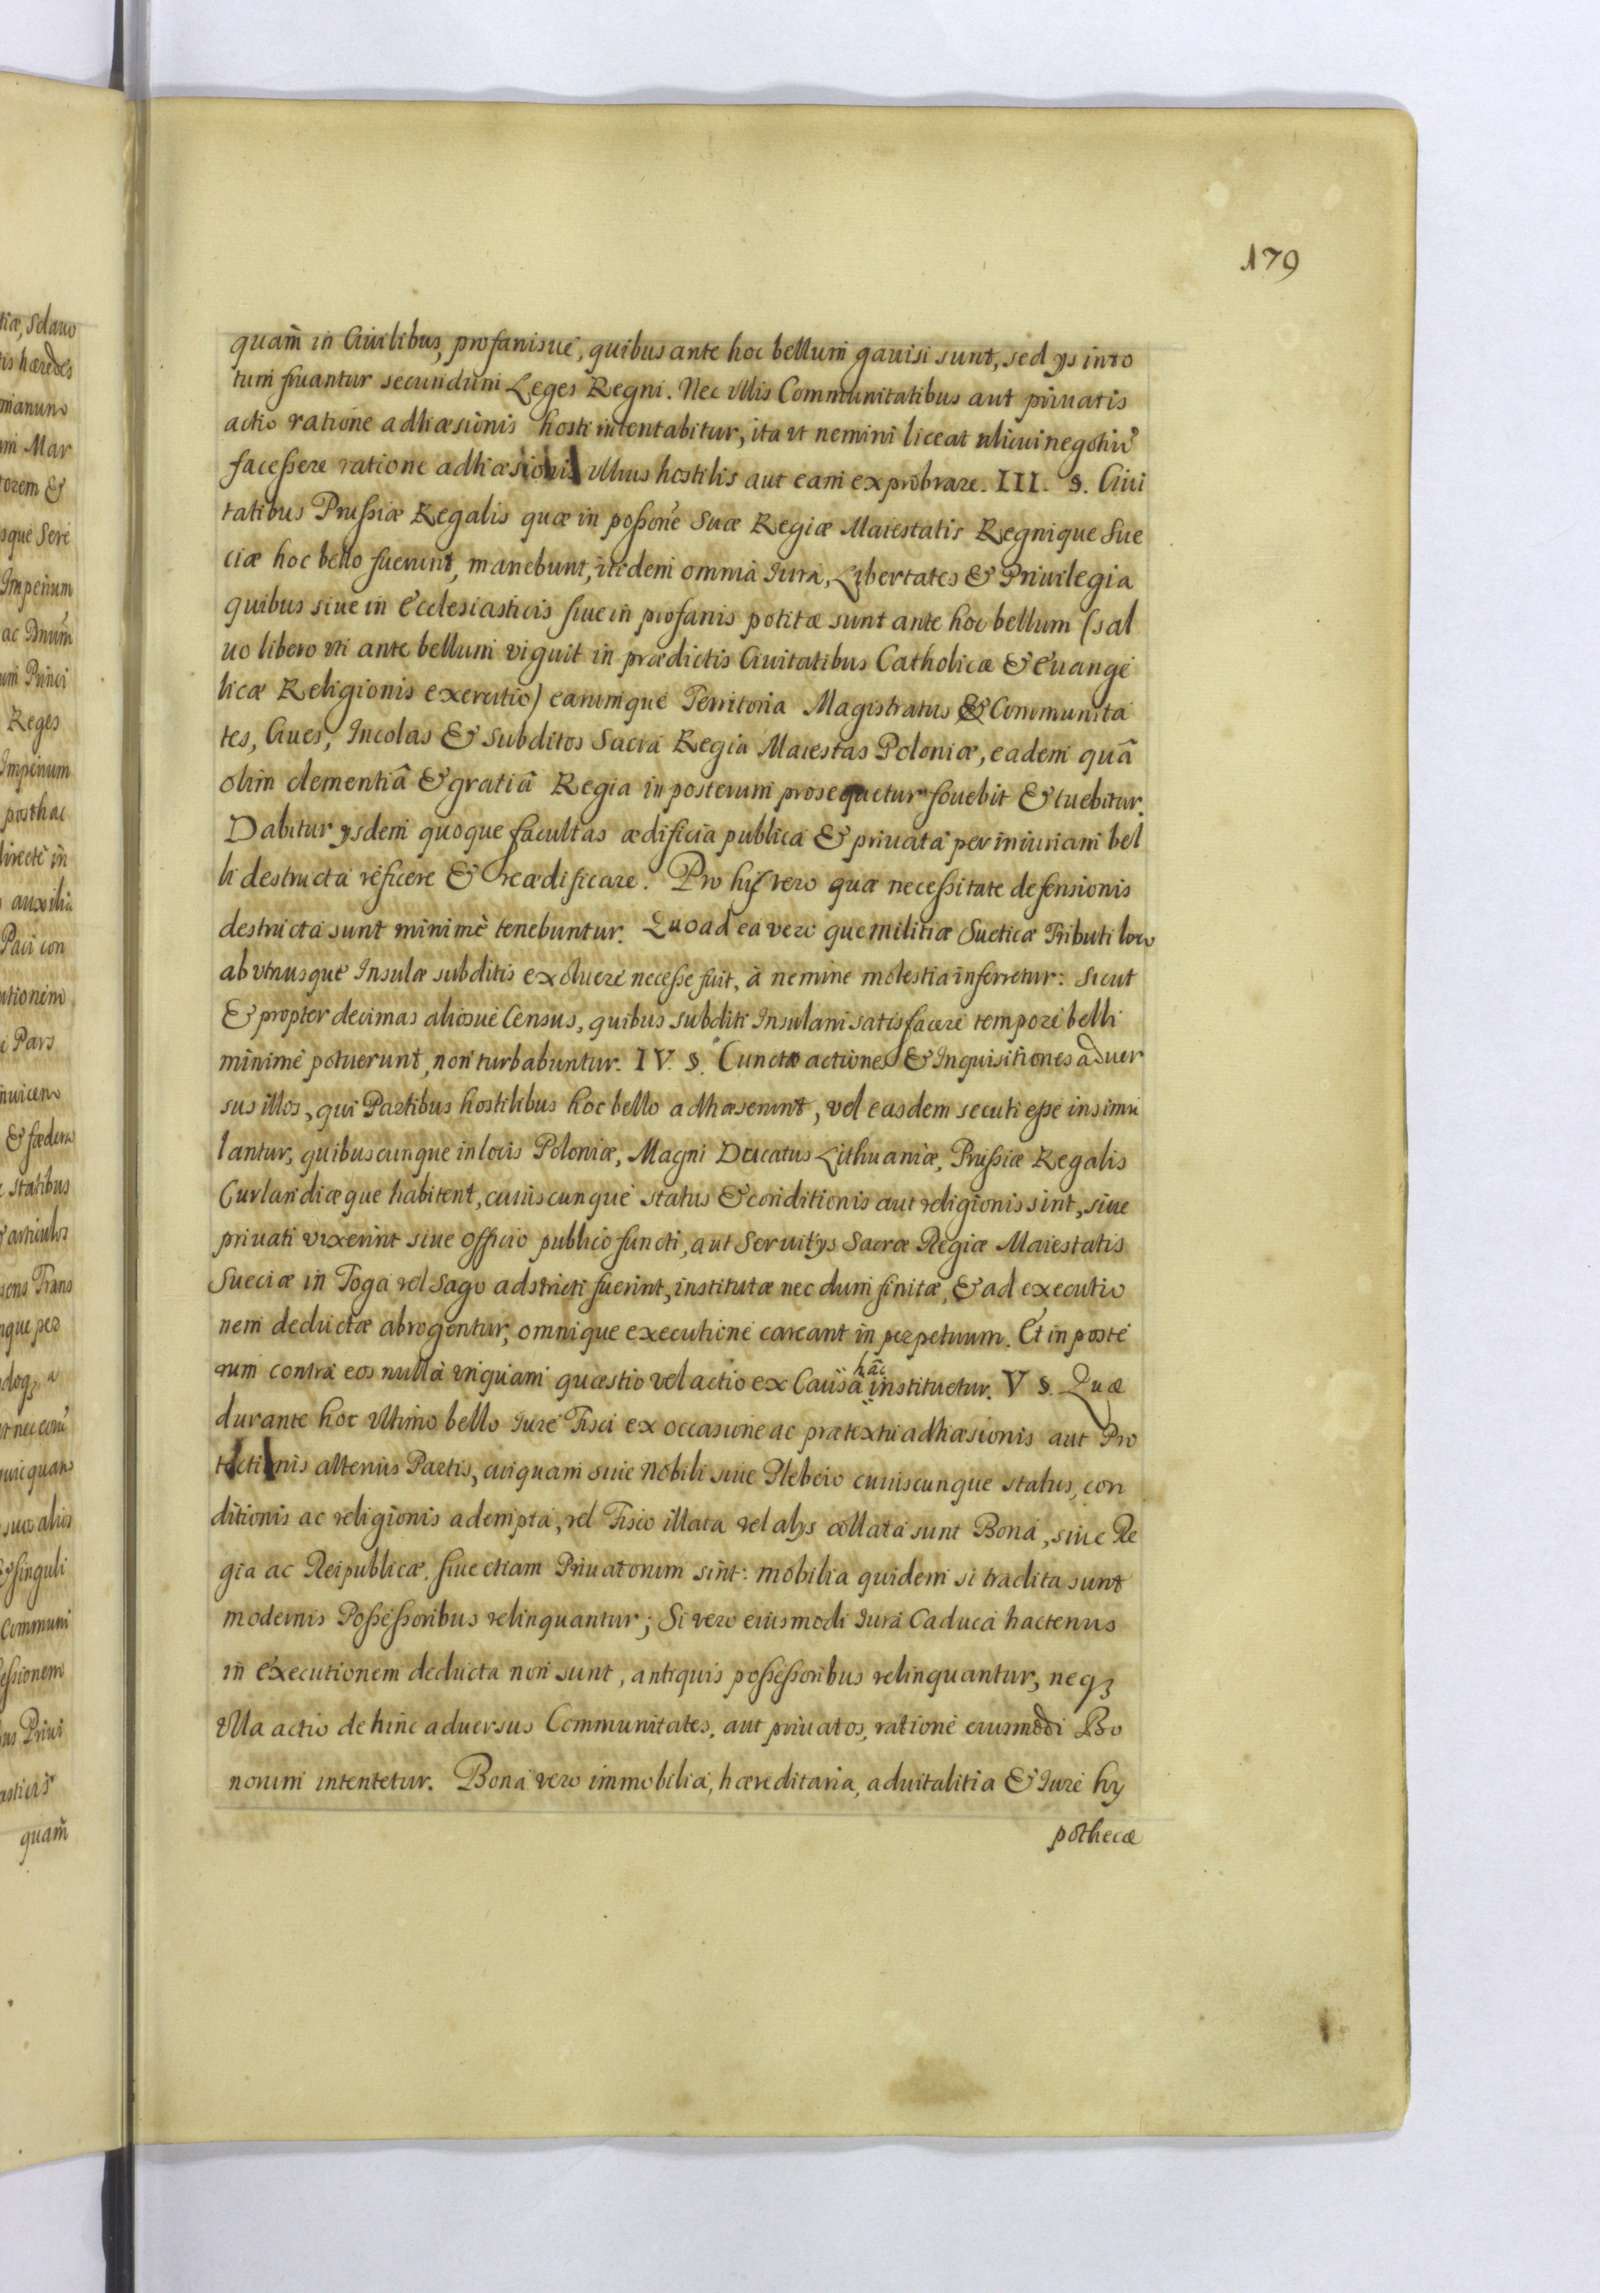 179
quam̃ in Ciuilibus, profanisue, quibus ante hoc bellum gauisi sunt, sed ÿs in to
tum fruantur secundum Leges Regni. Nec vllis Communitatibus aut priuatis
actio ratione adhæsionis hosti intentabitur, ita vt nemini liceat alicui negotiũ
facessere ratione adhæsionis vllius hostilis aut eam exprobrare. III. §. Ciui
tatibus Prussiæ Regalis quæ in possone Suæ Regiæ Maiestatis Regnique Sue
ciæ hoc bello fuerunt, manebunt, itidem omnia Iura, Libertates & Priuilegia
quibus siue in Ecclesiasticis siue in profanis potitæ sunt ante hoc bellum (sal
uo libero vti ante bellum viguit in prædictis Ciuitatibus Catholicæ & Euange
licæ Religionis exercitio) earumque Territoria Magistratus & Communita
tes, Ciues, Incolas & Subditos Sacra Regia Maiestas Poloniæ, eadem quâ
olim clementiâ & gratiâ Regia in posterum prosequetur fouebit & tuebitur.
Dabitur ÿsdem quoque facultas ædificia publica & priuata per iniuriam bel
li destructa reficere & reædificare. Pro his vero quæ necessitate defensionis
destructa sunt minimè tenebuntur. Quoad ea vero que militiæ Sueticæ Tributi loco
ab vtriusque Insulæ subditis exoluere necesse fuit, à nemine molestia inferretur: sicut
& propter decimas aliosue Census, quibus subditi Insulani satisfacere tempore belli
minime potuerunt, non turbabuntur. IV. §. Cunctæ actiones & Inquisitiones aduer
sus illos, qui Partibus hostilibus hoc bello adhæserunt, vel easdem secuti esse insimu
lantur, quibuscunque in locis Poloniæ, Magni Ducatus Lithuaniæ, Prussiæ Regalis
Curlandiæque habitent, cuiuscunque status & conditionis aut religionis sint, siue
priuati vixerint siue officio publico functi, aut Seruitÿs Sacræ Regiæ Maiestatis
Sueciæ in Toga vel Sago adstricti fuerint, institutæ nec dum finitæ, & ad executio
nem deductæ abrogentur, omnique executione careant in perpetuum. Et in poste
rum contra eos nulla vnquam quæstio vel actio ex Causâ hâc instituetur. V §. Quæ
durante hoc vltimo bello Iure Fisci ex occasione ac prætextu adhæsionis aut Pro
tectionis alterius Partis, cuiquam siue Nobili siue Plebeio cuiuscunque status, con
ditionis ac religionis adempta, vel Fisco illata vel alÿs collata sunt Bona, siue Re
gia ac Reipublicæ, siue etiam Priuatorum sint: mobilia quidem si tradita sunt
modernis Possessoribus relinquantur; Si vero eiusmodi Iura Caduca hactenus
in executionem deducta non sunt, antiquis possessoribus relinquantur, neqȝ
vlla actio dehinc aduersus Communitates, aut priuatos, ratione eiusmodi Bo
norum intentetur. Bona vero immobilia, hæreditaria, aduitalitia & Iure hy
pothecæ